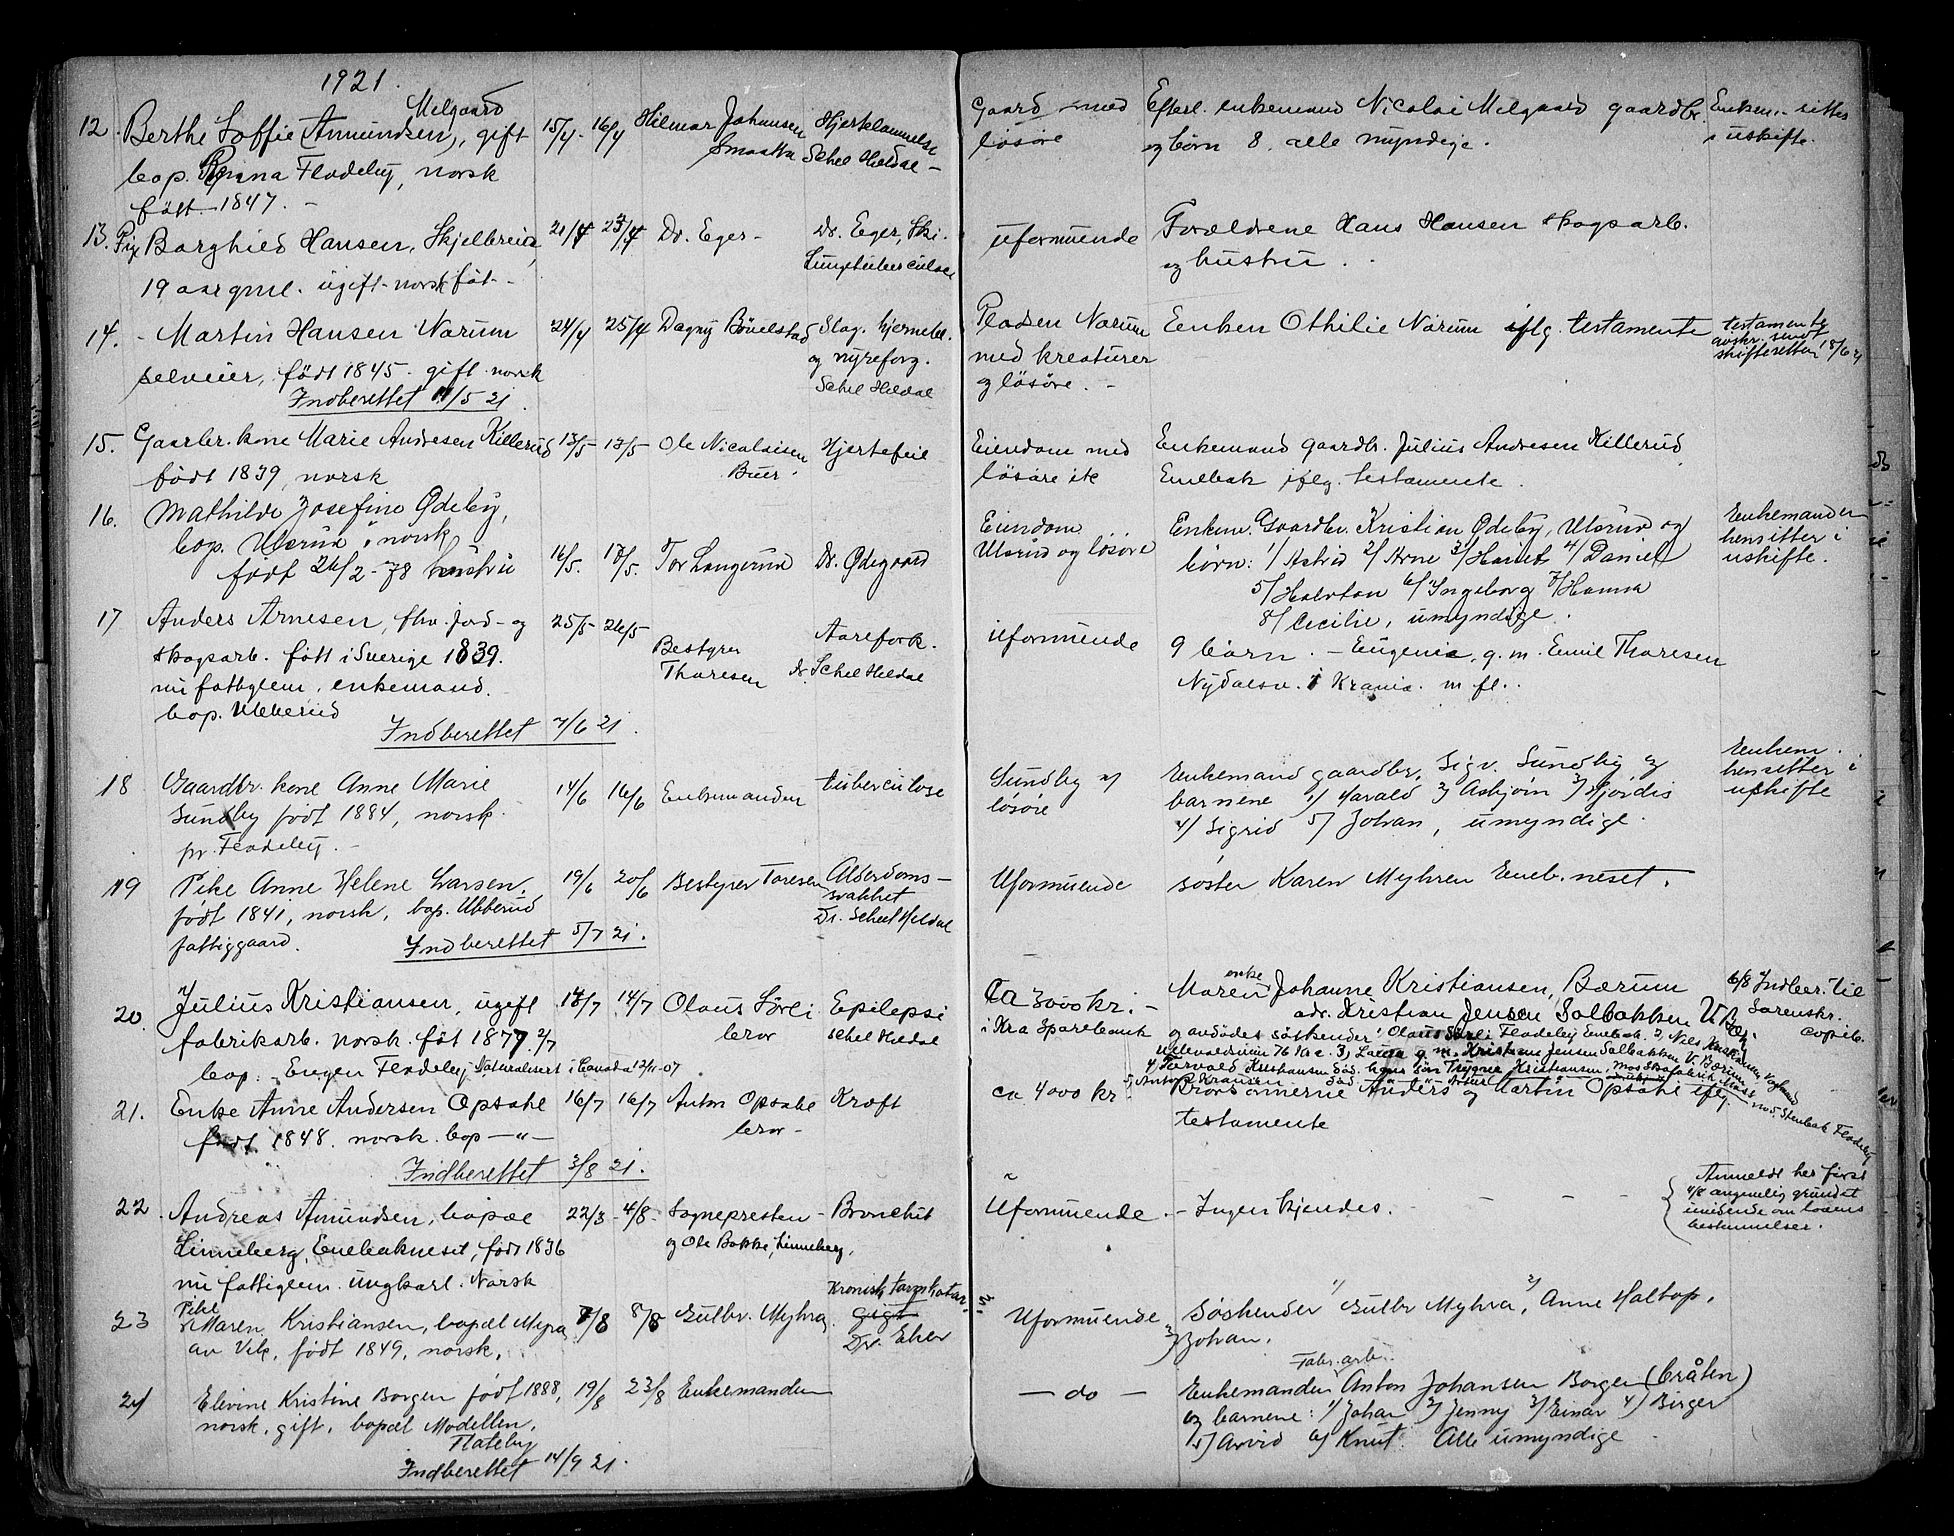 1921.
Melgaard
12. Berthe Soffie Amundsen, gift 15/4 16/4 Hilmar Johansen Hjertelammelse
bop. Flodeby, norsk Smaatta Schel Heldal -
født - 1847. -
Gaard med Efterl. enkemand Nicolai Melgaard gaardbr. Enkem. sitter
løsøre og børn 8, alle myndige. i uskifte.
13. Pige Borghild Hansen, Skjelbreia, 21/4 23/4 Dr. Eger - Dr. Eger, Ski.
19 aar gml. ugift - norsk føt - Lungetuberculose
uformuende Forældrene Hans Hansen skogsarb.
og hustru.
14. - Martin Hansen Narum 24/4 25/4 Dagny Bövelstad Slag. hjernebl.
selveier, født 1845 - gift norsk og nyreforg.
Indberettet 11/5 21. Schel Heldal
Pladsen Narum Enken Othilie Narum iflg. testamente testamente
med kreaturer avskr. sendt
og løsøre. - skifteretten 18/6 21
15. Gaardbr. kone Marie Andresen Killerud 13/5 - 13/5 - Ole Nicolaisen Hjertefeil
født 1839, norsk Buer.
Eiendom med Enkemand gaardbr. Julius Andresen Killerud
løsøre Enebak iflg. testamente.
16. Mathilde Josefine Ødeby,
bop. norsk
født 26/2 - 78 hustru 16/5. 17/5. Tor Langerud Dr. Ødegaard
Eiendom Enkem. Gaardbr. Kristian Ødeby, og Enkemanden
og løsøre børn: 1/ Astrid 2/ Arne 3/ 4/ Daniel hensitter i
5/ Halvdan 6/ Ingeborg 7/ Hanna uskifte.
8/ Cecilie, umyndige.
17 Anders Arnesen, fhv. jord- og 25/5 26/5
skogsarb. føtt i Sverige 1839. Bestyrer Aarefork.
nu fattiglem, enkemand. Thoresen Dr. Schel Heldal
bop. Ubberud
Indberettet 7/6 21.
uformuende 9 børn. - Eugenie, g. m. Emil Thoresen
Nydalsv. i Krania. m fl..
18 Gaardbr. kone Anne Marie 14/6 16/6 Enkemanden tuberculose
Sundby født 1884, norsk.
pr. Flodeby. -
Sundby m/ Enkemand gaardbr. Sigv. Sundby og Enkem.
løsøre barnene 1/ Harald 2/ Asbjørn 3/ Hjørdis hensitter i
4/ Sigrid 5/ Johan, umyndige. uskifte
19 Pike Anne Helene Larsen. 19/6 20/6 Bestyrer Toresen Alderdoms-
født 1841, norsk, bop. Ubberud svakhet
fattiggaard. Dr. Schel Heldal
Indberettet 5/7 21.
Uformuende søster Karen Myhren Eneb. neset.
20. Julius Kristiansen, ugift 13/7 14/7 Olaus Sörli Epilepsi
fabrikarb. norsk. føt 1877 2/7 bror Schel Heldal
bop. Engen Flodeby Naturalisert i Canada 12/11-07
Ca 3000 kr. - Maren enke Johanne Kristiansen, Bærum 6/8 Indber. til
i Kra Sparebank adr. Kristian Jensen Solbakken V. Sorenskr.
og avdødes søskender: Olaus Sörli Flodeby Enebak. 2, Nils Kristiansen, copieb.
3, Laura g. m. Kristian Jensen Solbakken V. Bærum
4, Torvald Kristiansen død, hans søn Trygve Kristiansen, Moss
21. Enke Anne Andersen Opsahl 16/7 16/7 Anton Opsahl Kræft
født 1848. norsk. bop - " - bror -
Indberettet 3/8 21.
ca 4000 kr Brorsønnerne Anders og Martin Opsahl iflg.
testamente
22. Andreas Amundsen, bopæl 22/3 - 4/8 - Sognepresten - Bronchit
Linneberg, Enebakneset, født 1836 og Ole Bakke, Linneberg,
nu fattiglem. ungkarl. Norsk
Uformuende. - Ingen kjendes. - - - Anmeldt her først
4/8 angivelig grundet
uvidende om lovens
bestemmelser.
23 Pike Maren Kristiansen, bopæl Myra 7/8 8/8 Gulbr. Myhra. Kronisk tarmkatar,
av Vik, født 1849, norsk. gigt
Dr. Eker
Uformuende Søskender 1/ Gulbr Myhra, 2/ Anne Haltop,
3/ Johan.
24 Elevine Kristine Borgen født 1888, 19/8 23/8 Enkemanden
norsk, gift, bopæl Modellen,
Flateby
Indberettet 14/9 21.
- do - Enkemanden Fabr. arb. Anton Johansen Borgen (Bråten)
og barnene: 1/ Johan 2/ Jenny 3/ Einar 4/ Birger
5/ Arvid 6/ Knut. Alle umyndige